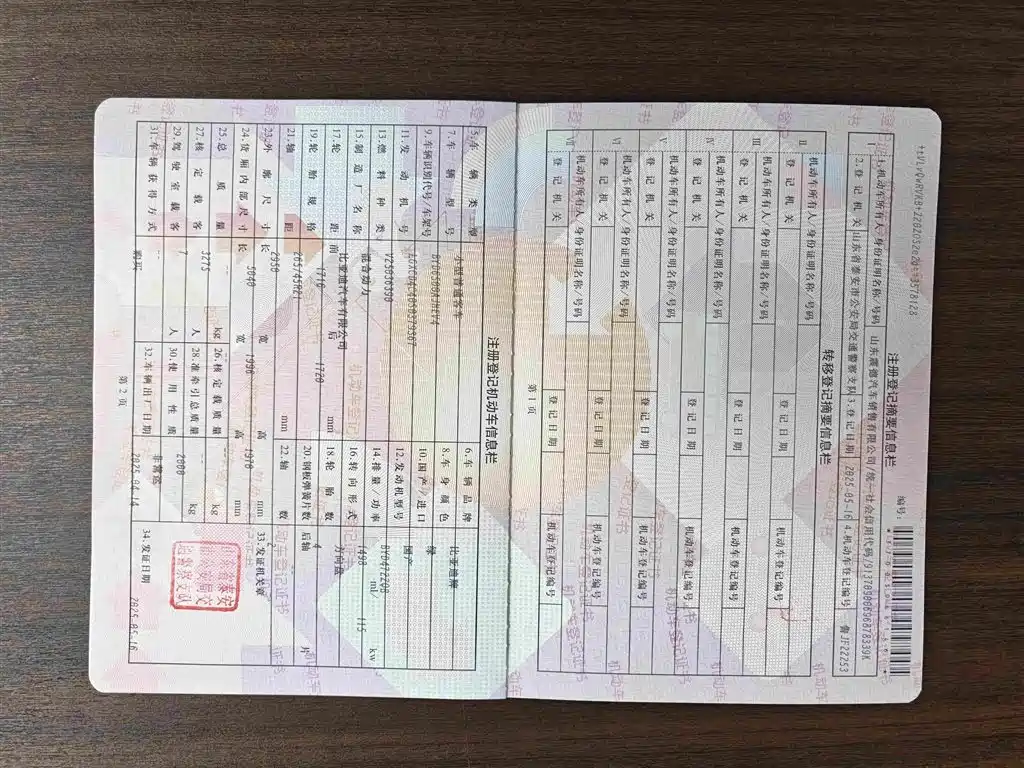 注册登记摘要信息栏
编号:
Ⅰ
1.机动车所有人/身份证明名称/号码 山东震德汽车销售有限公司/统一社会信用代码/
2.登记机关 山东省泰安市公安局交通警察支队 3.登记日期 2025-05-16 4.机动车登记编号 鲁JF22253
转移登记摘要信息栏
Ⅱ
机动车所有人/身份证明名称/号码
登记机关 登记日期 机动车登记编号
Ⅲ
机动车所有人/身份证明名称/号码
登记机关 登记日期 机动车登记编号
Ⅳ
机动车所有人/身份证明名称/号码
登记机关 登记日期 机动车登记编号
Ⅴ
机动车所有人/身份证明名称/号码
登记机关 登记日期 机动车登记编号
Ⅵ
机动车所有人/身份证明名称/号码
登记机关 登记日期 机动车登记编号
Ⅶ
机动车所有人/身份证明名称/号码
登记机关 登记日期 机动车登记编号
第1页
注册登记机动车信息栏
5.车辆类型 小型普通客车 6.车辆品牌 比亚迪牌
7.车辆型号 8.车身颜色 绿
9.车辆识别代号/车架号 10.国产/进口 国产
11.发动机号 12.发动机型号 BYD472QB
13.燃料种类 混合动力 14.排量/功率 1498 ml/ 115 kw
15.制造厂名称 比亚迪汽车有限公司 16.转向形式 方向盘
17.轮距 前 1710 后 1720 mm 18.轮胎数 4
19.轮胎规格 20.钢板弹簧片数 后轴 片
21.轴距 2950 mm 22.轴数 2
23.外廓尺寸 长 5040 宽 1996 高 1910 mm 33.发证机关章
24.货厢内部尺寸 长 宽 高 mm
25.总质量 3275 kg 26.核定载质量 -- kg
27.核定载客 7 人 28.准牵引总质量 2000 kg
29.驾驶室载客 -- 人 30.使用性质 非营运
31.车辆获得方式 购买 32.车辆出厂日期 2025-04-14 34.发证日期 2025-05-16
第2页